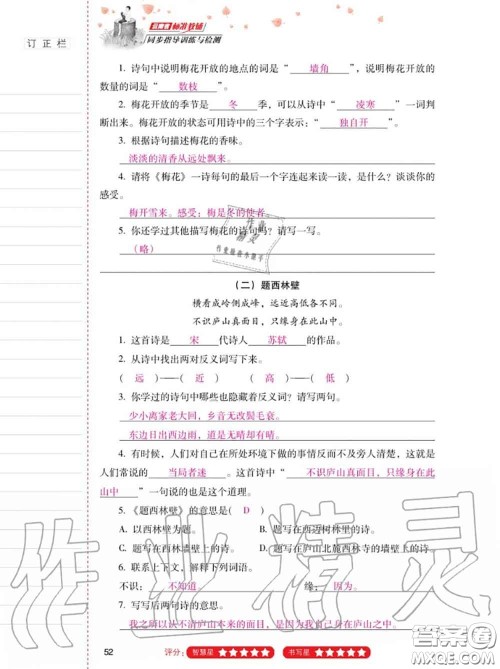 订正栏
标准教辅
同步指导训练与检测
1. 诗句中说明梅花开放的地点的词是“ 墙角 ”,说明梅花开放的
数量的词是“ 数枝 ”。
2. 梅花开放的季节是 冬 季,可以从诗中“ 凌寒 ”一词判
断出来。梅花开放的状态可用诗中的三个字表示:“ 独自开 ”。
3. 根据诗句描述梅花的香味。
淡淡的清香从远处飘来。
4. 请将《梅花》一诗每句的最后一个字连起来读一读,是什么?谈谈你的
感受。
梅开雪来。感受:梅是冬的使者。
5. 你还学过其他描写梅花的诗句吗?请写一写。
(略)
(二)题西林壁
横看成岭侧成峰,远近高低各不同。
不识庐山真面目,只缘身在此山中。
1. 这首诗是 宋 代诗人 苏轼 的作品。
2. 从诗中找出两对反义词写下来。
( 远 )——( 近 ) ( 高 )——( 低 )
3. 你学过的诗句中哪些也隐藏着反义词?请写两句。
少小离家老大回,乡音无改鬓毛衰。
东边日出西边雨,道是无晴却有晴。
4. 有时候,人们对自己在所处环境下做的事情反而不及旁人清楚,这就是
人们常说的“ 当局者迷 ”。这首诗中“ 不识庐山真面目,只缘身在此
山中 ”一句说的也是这个道理。
5. 《题西林壁》的意思是( D )
A. 以西林壁为题。 B. 题写在西边树林里的诗。
C. 题写在西林墙壁上的诗。 D. 题写在庐山北麓西林寺的墙壁上的诗。
6. 联系上下文,解释下列词语。
不识: 不知道。 缘: 因为。
7. 写写后两句诗的意思。
我之所以认不清庐山本来的面目,是因为我自己身在庐山之中。
52 评分: 智慧星 ★★★★★ 书写星 ★★★★★
作业精灵
答案圈
MXQE.COM